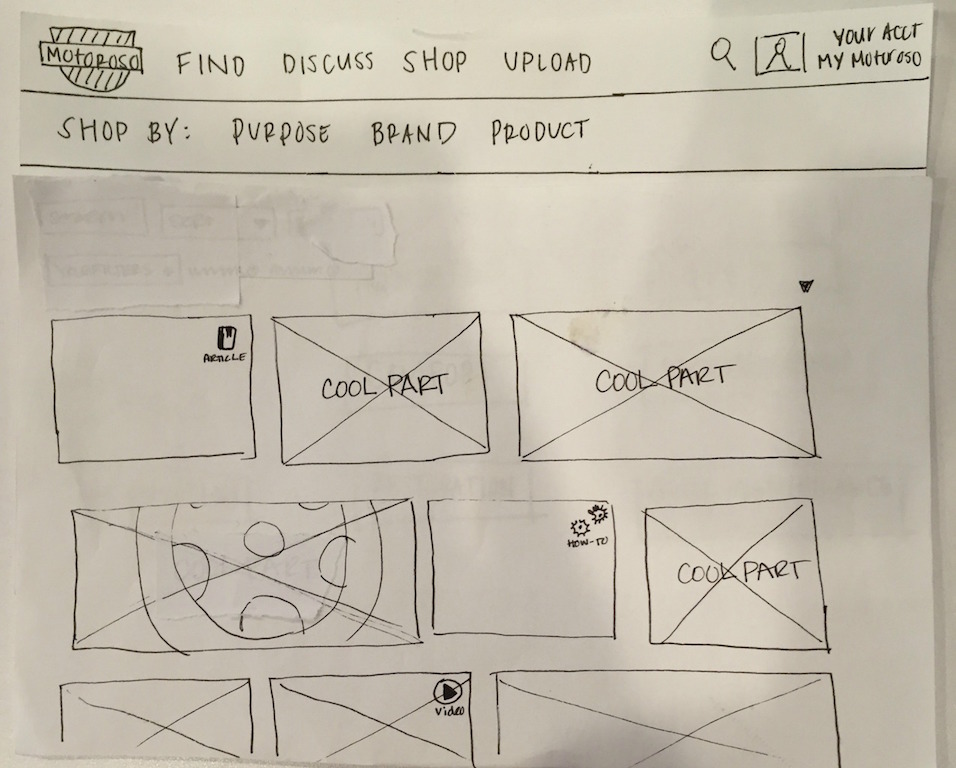 MOTOROSO FIND DISCUSS SHOP UPLOAD YOUR ACCT
MY MOTOROSO
SHOP BY: PURPOSE BRAND PRODUCT
ARTICLE
COOL PART
COOL PART
HOW-TO
COOL PART
Video